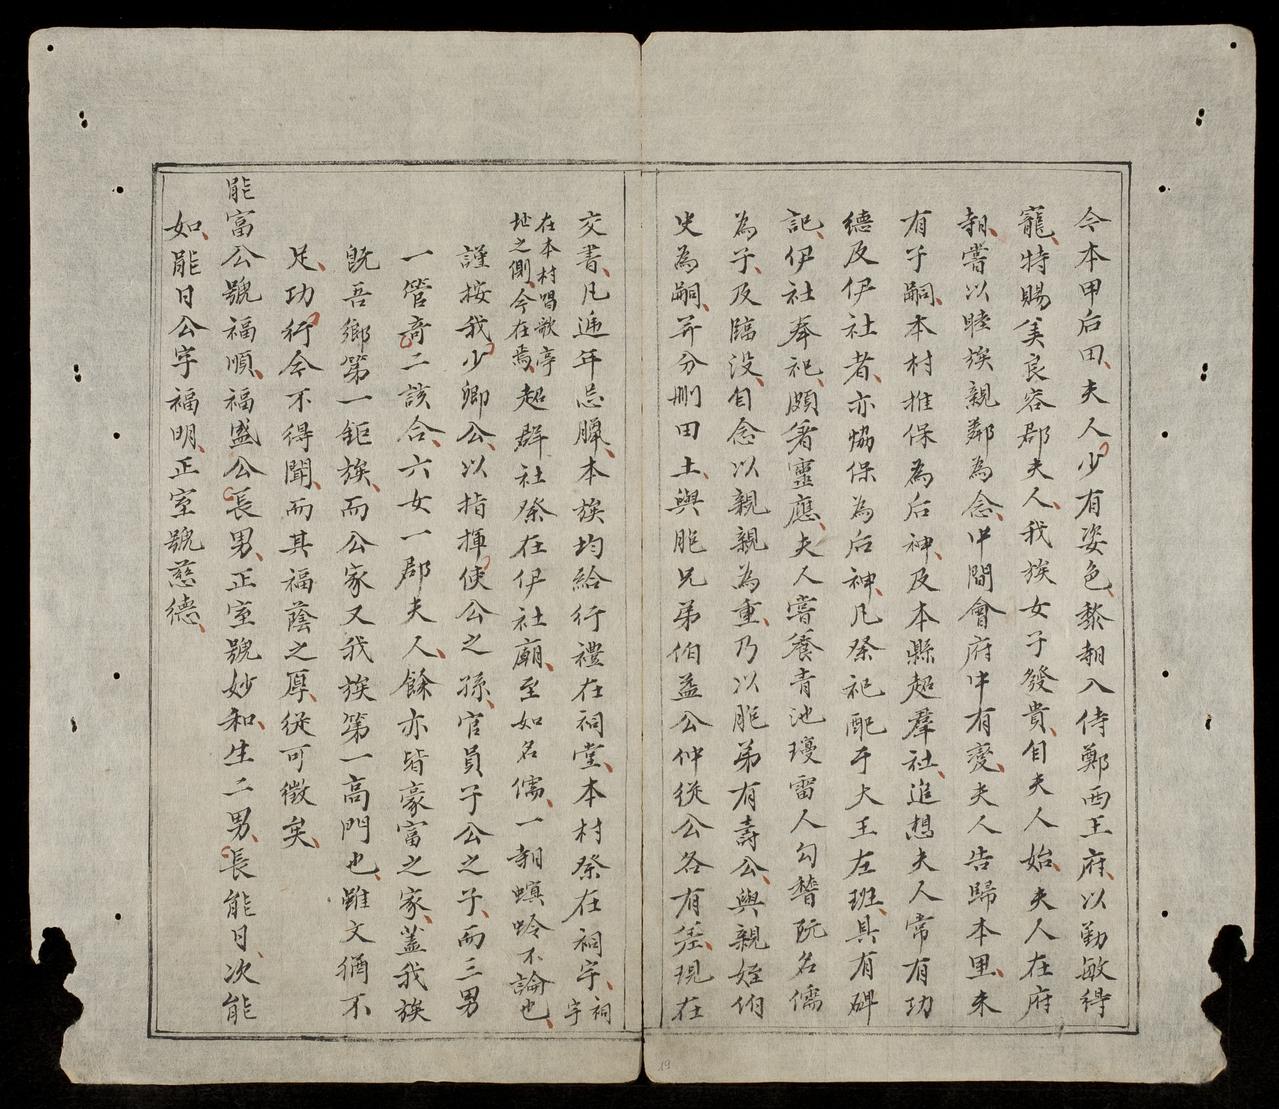 今本甲后田夫人少有姿色黎朝入侍鄭西王府以勤敏得
寵特賜美良容郡夫人我族女子發貴自夫人始夫人在府
朝嘗以睦族親鄰為念中間會府中有变夫人告歸本里未
有子嗣本村推保為后神及本縣超羣社追想夫人常有功
德及伊社者亦恊保為后神凡祭祀配于大王左班具有碑
記伊社奉祀頗著靈應夫人嘗養青池瓊雷人勾瞽阮名儒
為子及臨没自念以親親為重乃以胞弟有壽公與親姪伯
史為嗣并分刪田土與胞兄弟伯益公仲從公各有差現在
交書凡逓年忌臘本族均給行禮在祠堂本村祭在祠宇祠宇
在本村唱歌亭址之側今在焉超群社祭在伊社廟至如名儒一朝螟蛉不論也
謹按我少卿公以指揮使公之孫官員子公之子而三男
一管奇二該合六女一郡夫人餘亦皆豪富之家蓋我族
既吾鄉第一鉅族而公家又我族第一高門也雖文猶不
足功行今不得聞而其福蔭之厚從可徵矣
能富公號福順福盛公長男正室號妙和生二男長能日次能
如能日公字福明正室號慈德